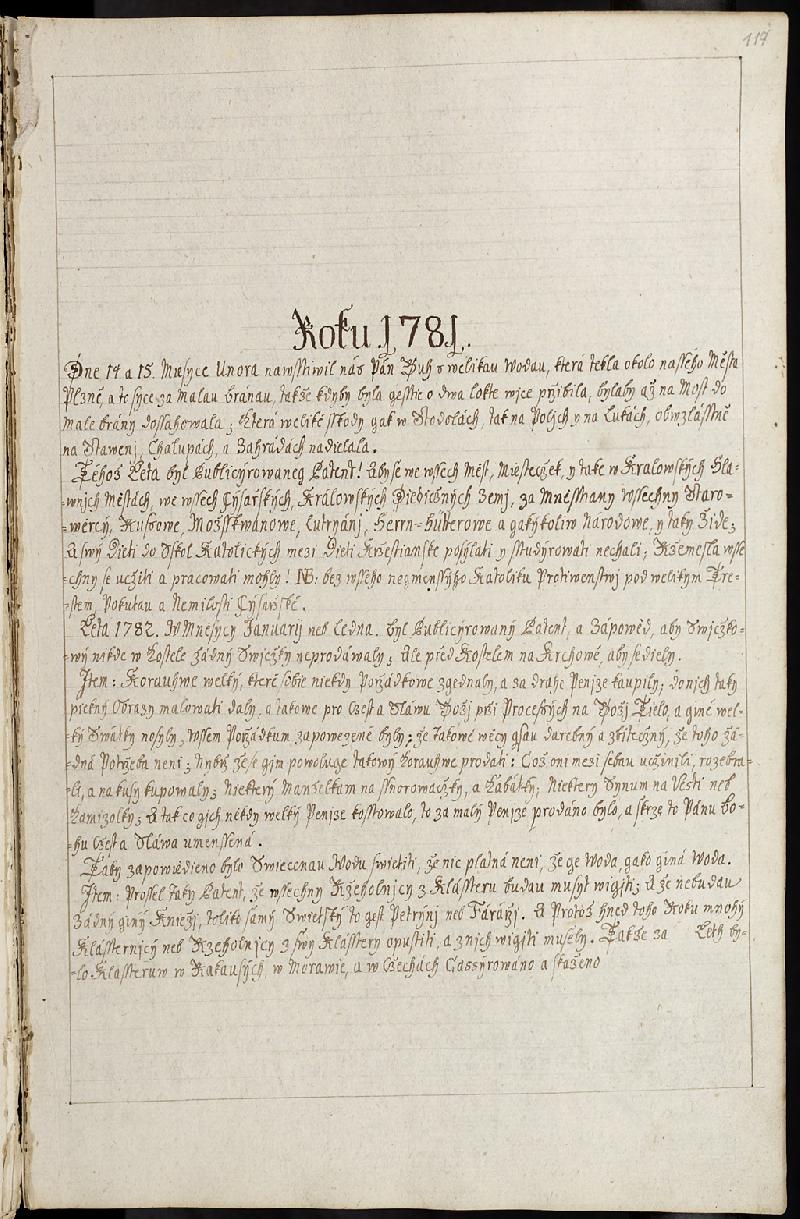 117
Roku 1781.
Dne 14 a 15. Mnsyce Unora nawsstiwil nás Pán Buh s welikau Wodau, která tekla okolo nasseho Města
Plzně, a to syce za malau bránau, takže kdyby byla gesstie o dwa lokte wjce přibila, bylaby až na Most do
Male brány dossahowala; Která weliké sskody gak w Stodolách, tak na Poljch y na Lukách, obwzlásstně
na Stawenj, Chalupách, a Zahradách nadielala.
Téhož Léta byl Publicýrowaneg Patent! aby se we wssech Měst, Miesteczek, y take w Kralowských Hla-
-wnjch Městách, we wssech Cýsařských, Králowských Diediečných Zemj, za Mnésstany wssechny Staro-
-wěrcy, Husowe, Mozsskwanowe, Lutryánj, Herrn-Hutterowe a gakýkoliw Národowe, y taky Židé;
A swý Dieti do Sskol Katolických mezi Dieti Křestianske posylati y sstudýrowati nechali; Ržemesla wsse
-chny se učiti a pracowati mohly! NB: bez wsseho neymenssýho Katoliku Protiwenstwj pod welikym Tre-
-stem, Pokutau a Nemilosti Cýsařské.
Léta 1782. W Mnesycy Januarij neb Ledna. byl Publicýrowaný Patent, a Zápowěd, aby Swjczko-
-wý nikde w Kostele žádný Swjczky neprodáwaly; Ale před Kostelem na Krchowě, aby sediely.
Jtem: Korauhwe welky, které sobie niekdy Porzádkowe zgednaly, a za drahe Penjze kaupily; do njch taky
piekný Obrazy malowati daly, a takowe pro Čzest a Sláwu Božj při Procesých na Božj Tielo, a giné wel-
-ký Swátky nosyly, wssem Porzádkum zapowezené byly; že takowé wěcy gsau darebný a zbitečzný, že toho žá-
-dná Potřeba neni; Nybrž že se gim powoluge takowý Korauhwe prodati: Což oni mezi sebau učzinili, rozebra-
-li, a na kusy kupowaly; Niekterý Manželkam na sshnorowaczky, a Kabátky; Niekterý Synum na Westi neb
Kamizolky; A tak co gich někdy welký Penjze kosstowalo, to za malý Penjze prodáno bylo, a skrze to Pánu Bo-
-hu Čzest a Sláwa umenssená.
Taky zapowědieno bylo Swiecenau Wodu swietiti, že nic platná neni, že ge Woda, gako giná Woda.
Jtem: Prossel taky Patent, že wssechny Ržeholnjcy z Klássteru budau musyt wigjti; A že nebudau
žádný giný Kniežj, toliko samý Swietsský to gest Petrýnj neb Fárářzj. A Protož hned toho Roku mnohý
Klássternjcy neb Ržeholnjcy z swý Klásstery opustiti, a z nich wigjti musely. Takže za Leth by-
-lo Klássteruw w Rakausých, w Morawie, a w Čzechách Cassýrowáno a skaženo